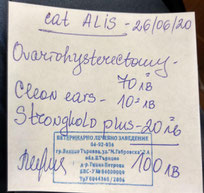 cat ALIS - 26/06/20
Ovariohysterectomy -
70 лв
Clean ears - 10 лв
Stronghold plus - 20 лв
ВЕТЕРИНАРНО ЛЕЧЕБНО ЗАВЕДЕНИЕ
гр. Велико Търново, ул. "М. Габровски"
100 лв